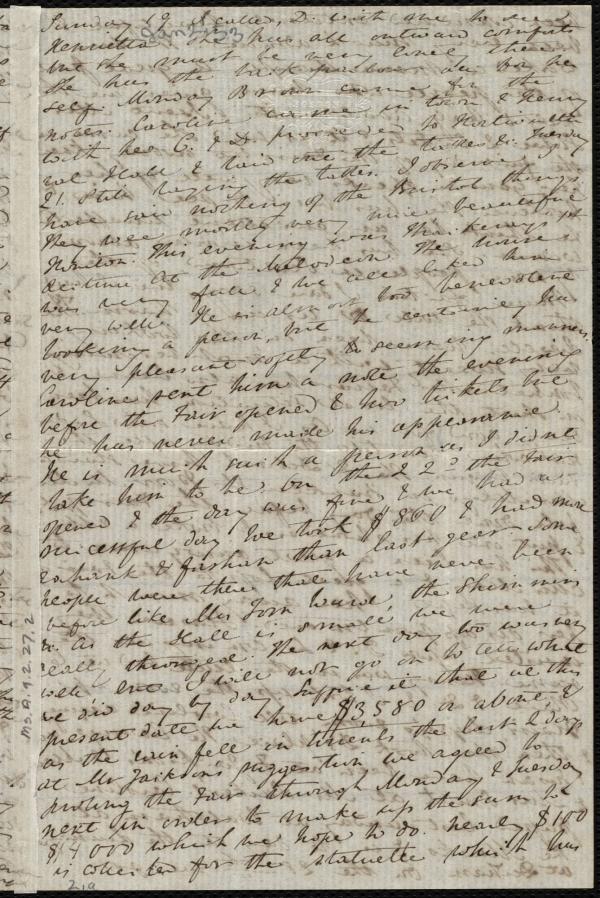 Sunday 19 I called, D. with me to see
Henrietta. She has all outward comforts
but she must be very lonely there
She has the back parlour all for her
self. Monday Brown came for the
notes. Caroline came in town & Henry
with her C. & D. proceeded to Horticultu
ral Hall & laid out the tables &c. Tuesday
21. Still laying the tables. I observe I
have said nothing of the Bristol things
they were mostly very nice beautiful
Honiton. This evening was Thackeray's 1st
lecture at the Melodeon. The house
was very full & we all liked him
very well. He is almost too benevolent
looking a person, but he certainly has
very pleasant softly & seeming manners
Caroline sent him a note the evening
before the Fair opened & two tickets but
he has never made his appearance
He is much such a person as I didn't
take him to be. On the 22d the Fair
opened & the day was fine & we had a
successful day. We took $860 & had more
& fashion than last year. Some
people were there that have never been
before like Mrs Tom Ward, the Shimmins
&c. As the Hall is small, we were
really thronged. The next day too was very
well but I will not go on to tell what
we did day by day. Suffice it that at this
present date we have $3,580 or about, &
as the rain fell in torrents the last 2 days
at Mr Jackson's suggestion, we agreed to
prolong the Fair through Monday & Tuesday
next in order to make up the sum to
$4000 which we hope to do. Nearly $100
is collected for the statuette which has
Jan 21. 53
Ms.A.9.2.27.2
2,a